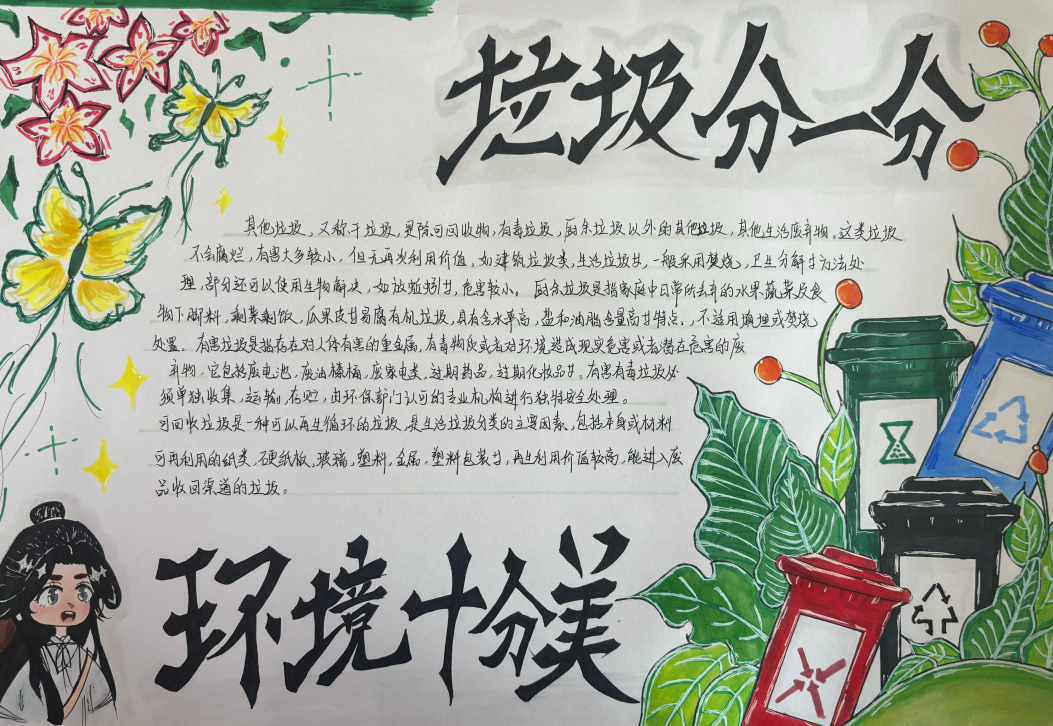 垃圾分一分
其他垃圾，又称干垃圾，是除可回收物，有毒垃圾，厨余垃圾以外的其他垃圾，其他生活废弃物。这类垃圾
不会腐烂，有害大多较小，但无再次利用价值，如建筑垃圾类，生活垃圾等，一般采用焚烧，卫生分解等方法处
理，部分还可以使用生物解决，如放蚯蚓等，危害较小。厨余垃圾是指家庭中日常所丢弃的水果蔬菜及食
物下脚料，剩菜剩饭，瓜果皮等易腐有机垃圾，具有含水率高，盐和油脂含量高等特点，不适用填埋或焚烧
处置。有害垃圾是指存在对人体有害的重金属，有毒物质或者对环境造成现实危害或者潜在危害的废
弃物，它包括废电池，废油漆桶，废家电类，过期药品，过期化妆品等，有害有毒垃圾必
须单独收集，运输，在贮，由环保部门认可的专业机构进行独特安全处理。
可回收垃圾是一种可以再生循环的垃圾，是生活垃圾分类的主要因素，包括本身或材料
可再利用的纸类，硬纸板，玻璃，塑料，金属，塑料包装等，再生利用价值较高，能进入废
品收回渠道的垃圾。
环境十分美